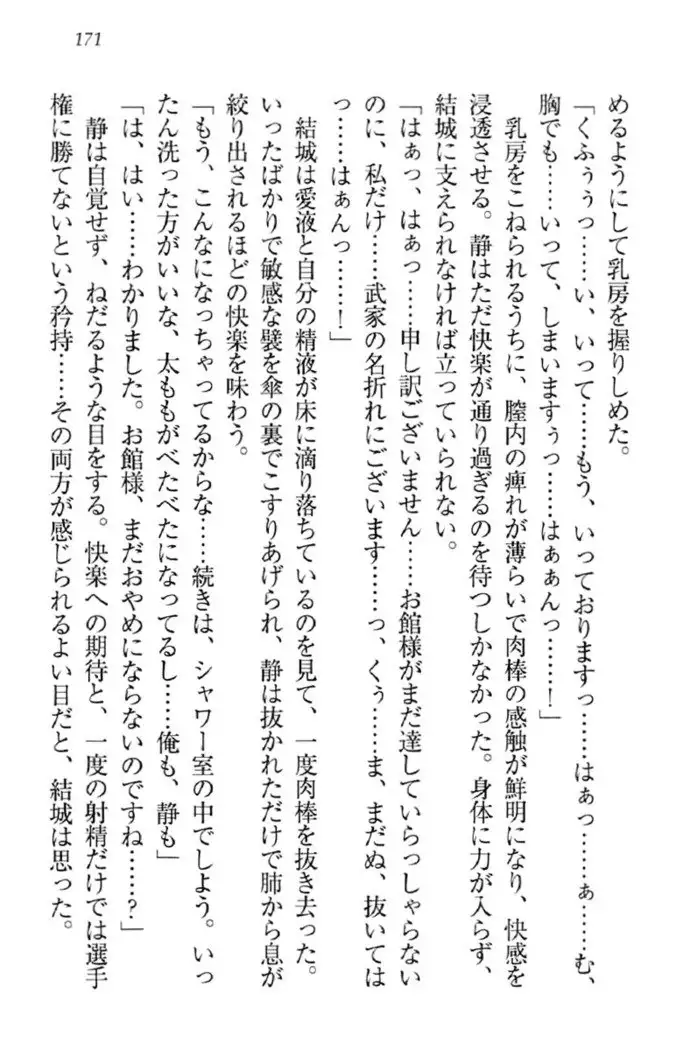 171
めるようにして乳房を握りしめた。
「くふぅぅっ……い、いって……もう、いっておりますっ……はぁっ……ぁ……む、
胸でも……いって、しまいますぅっ……はぁぁんっ……！」
乳房をこねられるうちに、膣内の痺れが薄らいで肉棒の感触が鮮明になり、快感を
浸透させる。静はただ快楽が通り過ぎるのを待つしかなかった。身体に力が入らず、
結城に支えられなければ立っていられない。
「はぁっ、はぁっ……申し訳ございません……お館様がまだ達していらっしゃらない
のに、私だけ……武家の名折れにございます……っ、くぅ……ま、まだぬ、抜いては
っ……はぁんっ……！」
結城は愛液と自分の精液が床に滴り落ちているのを見て、一度肉棒を抜き去った。
いったばかりで敏感な襞を傘の裏でこすりあげられ、静は抜かれただけで肺から息が
絞り出されるほどの快楽を味わう。
「もう、こんなになっちゃってるからな……続きは、シャワー室の中でしよう。いっ
たん洗った方がいいな、太ももがべたべたになってるし……俺も、静も」
「は、はい……わかりました。お館様、まだおやめにならないのですね……？」
静は自覚せず、ねだるような目をする。快楽への期待と、一度の射精だけでは選手
権に勝てないという矜持……その両方が感じられるよい目だと、結城は思った。